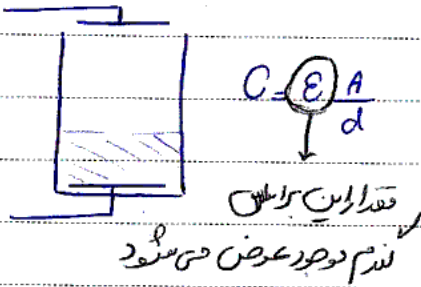 C = ε A / d
مقدار این براساس
گندم موجود عوض می‌شود